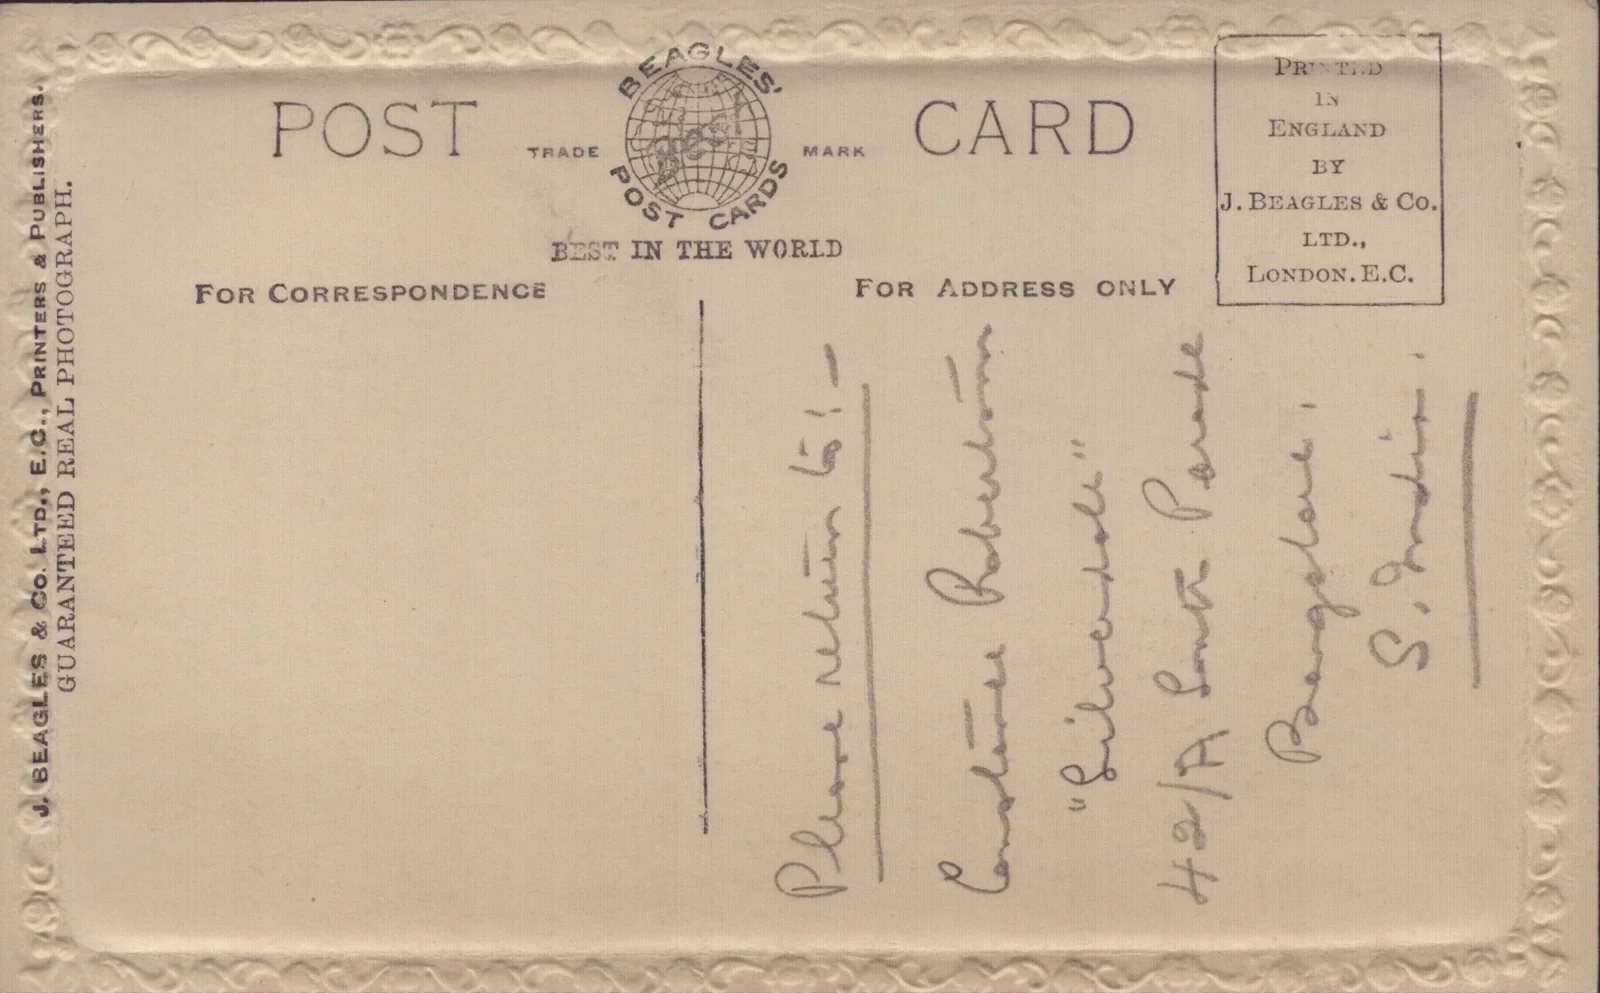 J. BEAGLES & CO. LTD., E.C., PRINTERS & PUBLISHERS.
GUARANTEED REAL PHOTOGRAPH.
POST CARD
BEAGLES'
TRADE MARK
POST CARDS
BEST IN THE WORLD
FOR CORRESPONDENCE
FOR ADDRESS ONLY
PRINTED
IN
ENGLAND
BY
J. BEAGLES & Co.
LTD.,
LONDON. E.C.
Please return to:—
Constance Robertson
"Silverdale"
42/A South Parade
Bangalore.
S. India.